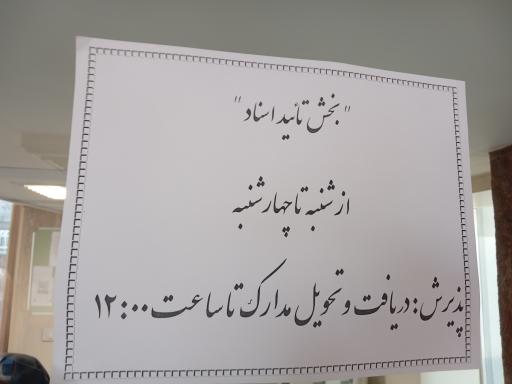 "بخش تائید اسناد"
از شنبه تا چهارشنبه
پذیرش: دریافت و تحویل مدارک تا ساعت ۱۲:۰۰